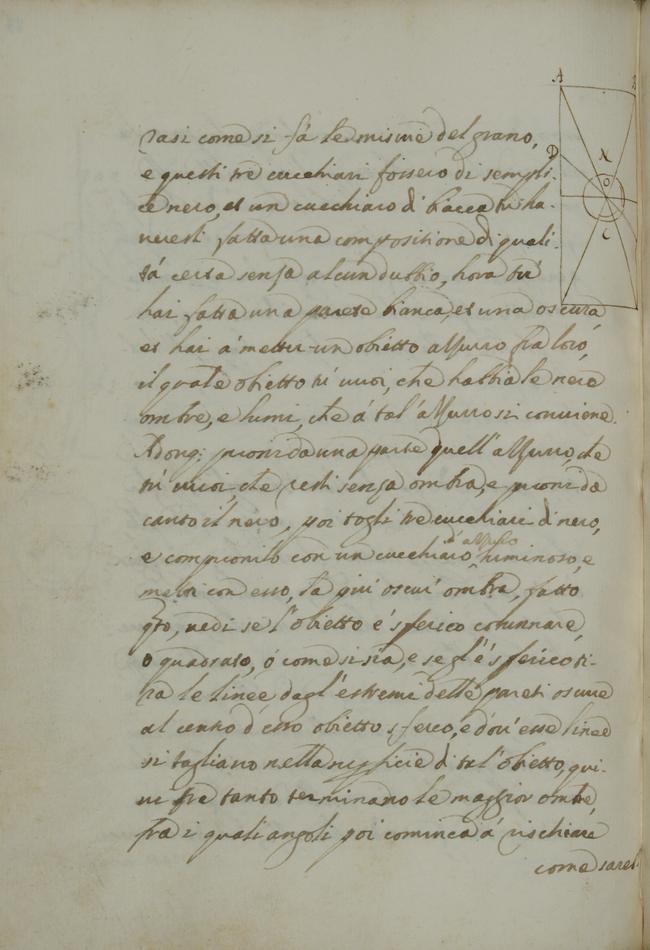 A
D
N
O
C
rasi come si fà le misure del grano,
e questi tre cucchiari fossero di sempli-
ce nero, et un cucchiaro di biacca tu ha-
veresti fatta una compositione di quali-
tá certa senza alcun dubbio, hora tu
hai fatta una parete bianca, et una oscura
et hai á metter un obietto azzurro fra loro,
il quale obietto tu uuoi, che habbia le uere
ombre, e lumi, che á tal' azzurro si conviene.
Adonq; poni da una parte quell' azzurro, che
tu uuoi, che resti senza ombra, e poni da
canto il nero, poi togli tre cucchiari di nero,
e componilo con un cucchiaro d'azzurro luminoso, e
metti con esso, la piu' oscur' ombra, fatto
qto, uedi se l'obietto é sferico colunnare,
o quadrato, ó come si sia, e se gl' é sferico ti-
ra le linee dagl' estremi delle pareti oscure
al centro d'esso obietto sferico, e dou' esse linee
si tagliano nella superficie di tal' obietto, qui-
ui fra tanto terminano le maggior ombre,
fra i quali angoli poi comincia á rischiarare
come sareb